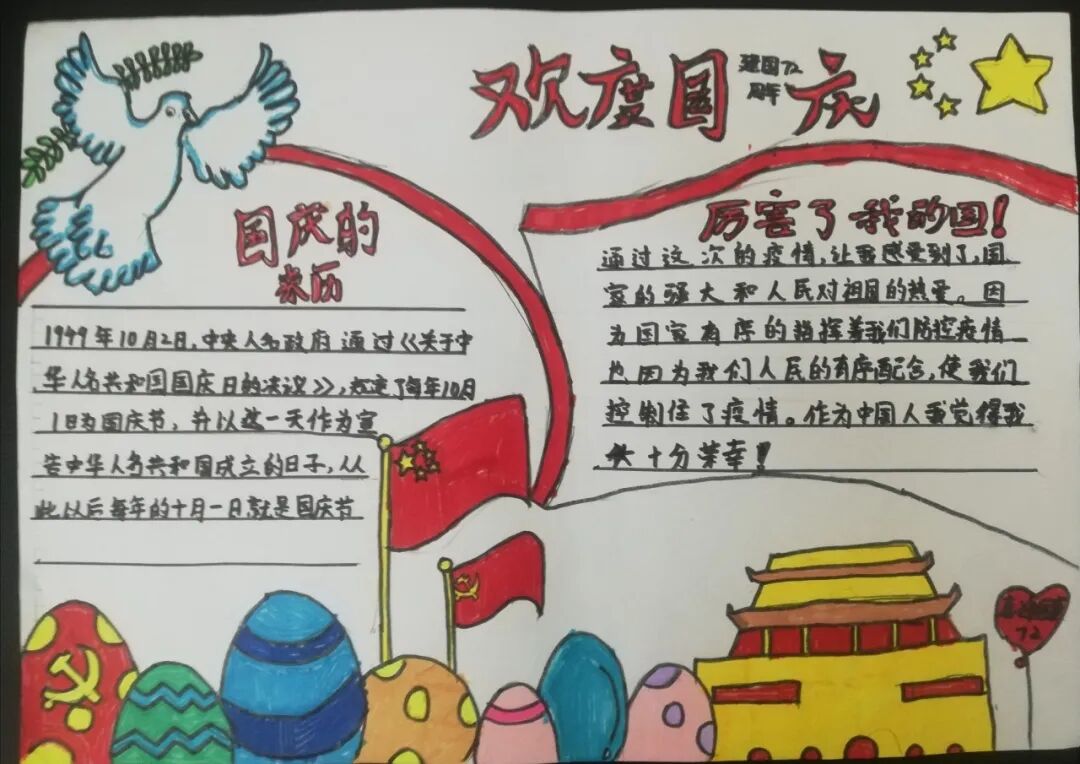 欢度国庆
建国72
周年
国庆的
来历
1949年10月2日,中央人民政府通过《关于中
华人民共和国国庆日的决议》,规定了每年10月
1日为国庆节,并以这一天作为宣
告中华人民共和国成立的日子,从
此以后每年的十月一日就是国庆节
厉害了我的国!
通过这次的疫情,让我感受到了,国
家的强大和人民对祖国的热爱。因
为国家有序的指挥着我们防控疫情
也因为我们人民的有序配合,使我们
控制住了疫情。作为中国人我觉得我
十分荣幸!
72